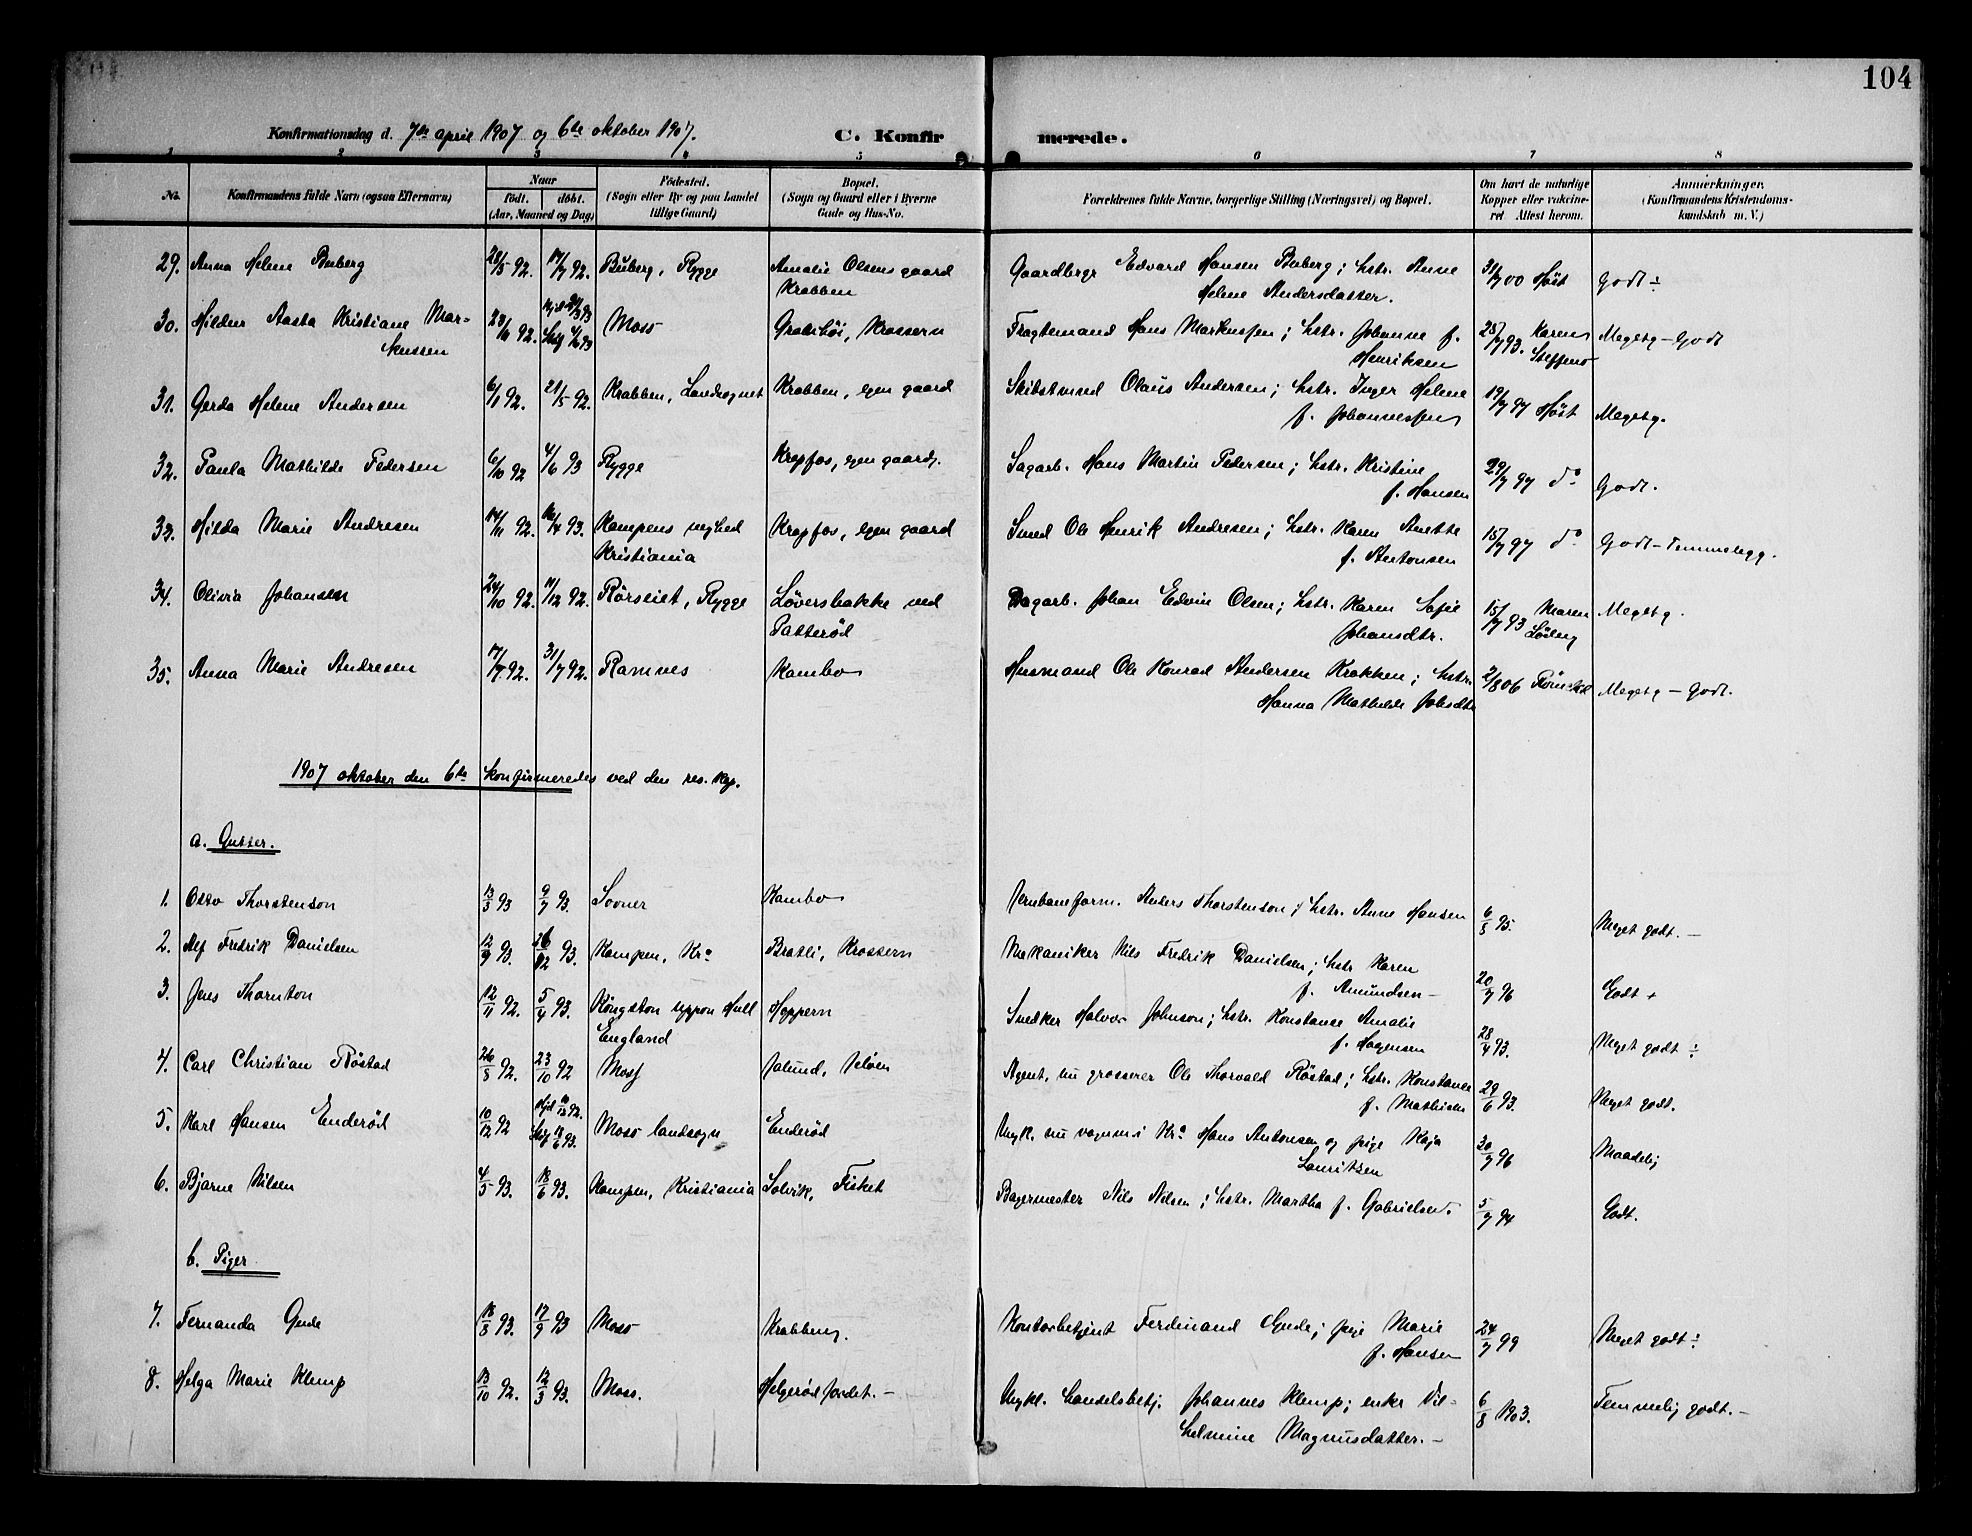 104
Konfirmationsdag d. 7de april 1907 og 6te oktober 1907. C. Konfirmerede.
1 2 3 4 5 6 7 8
No. Konfirmandens fulde Navn (ogsaa Efternavn) Naar født. døbt. (Aar, Maaned og Dag) Fødested. (Sogn eller By og paa Landet tillige Gaard) Bopæl. (Sogn og Gaard eller i Byerne Gade og Hus-No. Forældrenes fulde Navne, borgerlige Stilling (Næringsvei) og Bopæl. Om havt de naturlige Kopper eller vaccineret Attest herom. Anmærkninger. (Konfirmandens Kristendomskundskab m. V.)
29. Anna Helene Buberg 28/5 92. 17/7 92. Buberg, Rygge Amalie Olsens gaard Gaardbrgr Edvard Hansen Buberg; hstr. Anne 31/7 00 Høst Godt ÷
Krabben Helene Andersdatter.
30. Hildur Aasta Kristiane Mar- 23/11 92. Moss Grønhøi, Krossern Fragtemand Hans Markussen; hstr. Johanne f. 28/7 93. Karen Megetg - Godt
kussen Henriksen Steffens
31. Gerda Helene Andersen 6/1 92. 21/5 92. Krabben, Landsognet Krabben, egen gaard Skibstmd Olaus Andersen; hstr. Inger Helene 19/7 97 Høst Megetg.
f. Johannessen
32. Paula Mathilde Pedersen 6/10 92 4/6 93 Rygge Krapfos, egen gaard. Sagarb. Hans Martin Pedersen; hstr. Kristine 29/7 97 do Godt.
f. Hansen
33. Hilda Marie Andresen 14/11 92. 16/4 93. Kampens mghed Krapfos, egen gaard Smed Ole Henrik Andresen; hstr. Karen Anette 15/7 97 do Godt - Temmeligg.
Kristiania f. Antonsen
34. Olivia Johansen 24/10 92. 11/12 92. Rørseiet, Rygge Løversbakke ved Dagarb. Johan Edvin Olsen; hstr. Karen Sofie 15/7 93 Maren Megetg.
Patterød Johansdtr. Løsleng
35. Anna Marie Andresen 17/7 92. 31/7 92. Ramnes Kambo Husmand Ole Konrad Andersen Krakken; hstr. 2/8 06 Megetg - Godt.
Hanna Mathilde Johsdtr
1907 oktober den 6te konfirmeredes ved den res. kap.
a. Gutter.
1. Otto Thorstenson 13/3 93 9/7 93. Sooner Kambo Jernbaneform. Anders Thorstenson; hstr. Anne Hansen 6/8 95. Meget godt. -
2. Alf Fredrik Danielsen 12/9 93. 26/12 93. Kampen, Kra Bratli, Krossern Mekaniker Nils Fredrik Danielsen; hstr Karen 20/7 96 Godt +
f. Amundsen -
3. Jens Thornton 12/11 92. 5/4 93. Kongston uppon Hull Hoppern Snedker Halvor Johnson; hstr. Konstance Amalie 28/4 93. Meget godt ÷
England f. Hagensen
4. Carl Christian Røstad 26/8 92. 23/10 92 Moss Jalund, Jeløen Agent, nu grosserer Ole Thorvald Røstad; hstr. Konstance 29/6 93. Meget godt.
f. Mathisen
5. Karl Hansen Enderød 10/12 92 Moss landsogn Enderød Ungk. nu vognm. i Kra Hans Antonsen og pige Kaja 30/7 96 Maadelig
Lauritzen
6. Bjarne Nilsen 4/5 93. 18/6 93. Kampen, Kristiania Solvik, Fisket Bagermester Nils Nilsen; hstr. Martha f. Gabrielsen. 5/7 94 Godt.
b. Piger
7. Fernanda Gude 18/8 93. 17/9 93 Moss Krabben. Kontorbetjent Ferdinand Gude; pige Marie 24/7 99 Meget godt ÷
f. Hansen
8. Helga Marie Klemp 13/10 92. 12/3 93. Moss. Helgerødjordet. - Ungkl. handelsbetj. Johannes Klemp; enke Vil- 6/8 1903. Temmelig godt. -
helmine Magnusdatter. -